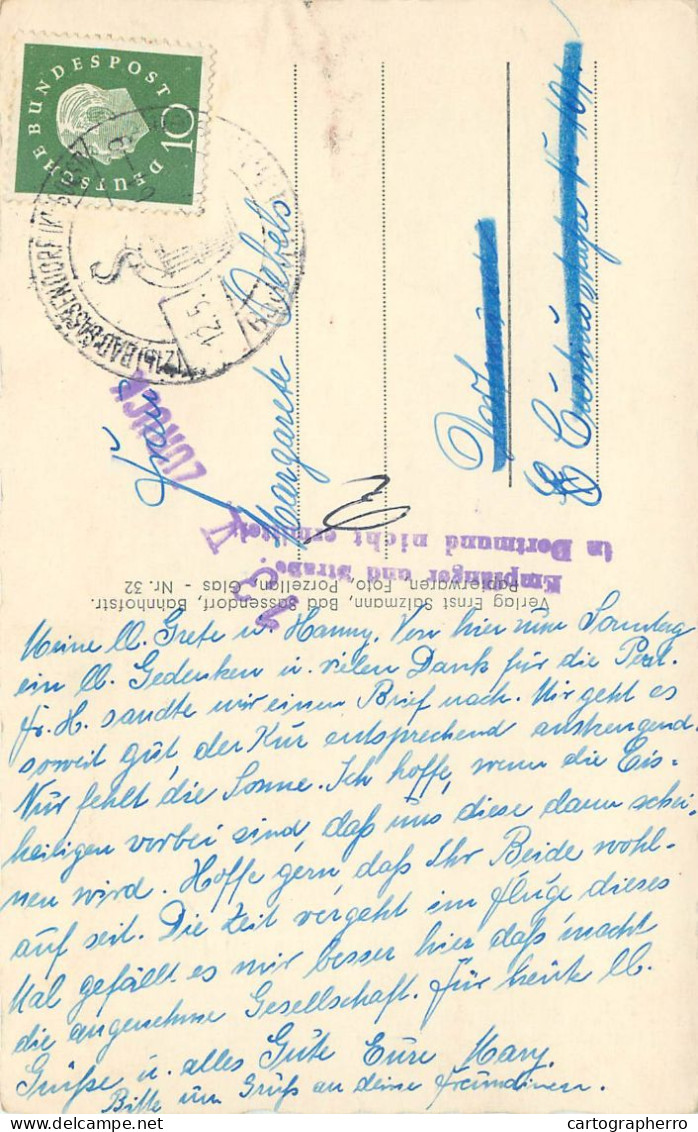 DEUTSCHE BUNDESPOST
10
(21b) BAD SASSENDORF
12.5.
ZURÜCK
Frau
Margarete
Dortmund
Empfänger und Straße
in Dortmund nicht ermittelt
Verlag Ernst Salzmann, Bad Sassendorf, Bahnhofstr.
Papierwaren, Foto, Porzellan, Glas - Nr. 32
Meine ll. Grete u. Hanny. Von hier nun Sonntag
ein ll. Gedenken u. vielen Dank für die Post.
Fr. H. sandte mir einen Brief nach. Mir geht es
soweit gut, der Kur entsprechend anstrengend.
Nur fehlt die Sonne. Ich hoffe, wenn die Eis-
heiligen vorbei sind, daß uns diese dann schei-
nen wird. Hoffe gern, daß Ihr Beide wohl-
auf seit. Die Zeit vergeht im Fluge dieses
Mal gefällt es mir besser hier daß macht
die angenehme Gesellschaft. Für heute ll.
Grüße u. alles Gute Eure Mary.
Bitte um Gruß an deine Freundinnen.
cartographerro
delcampe.net